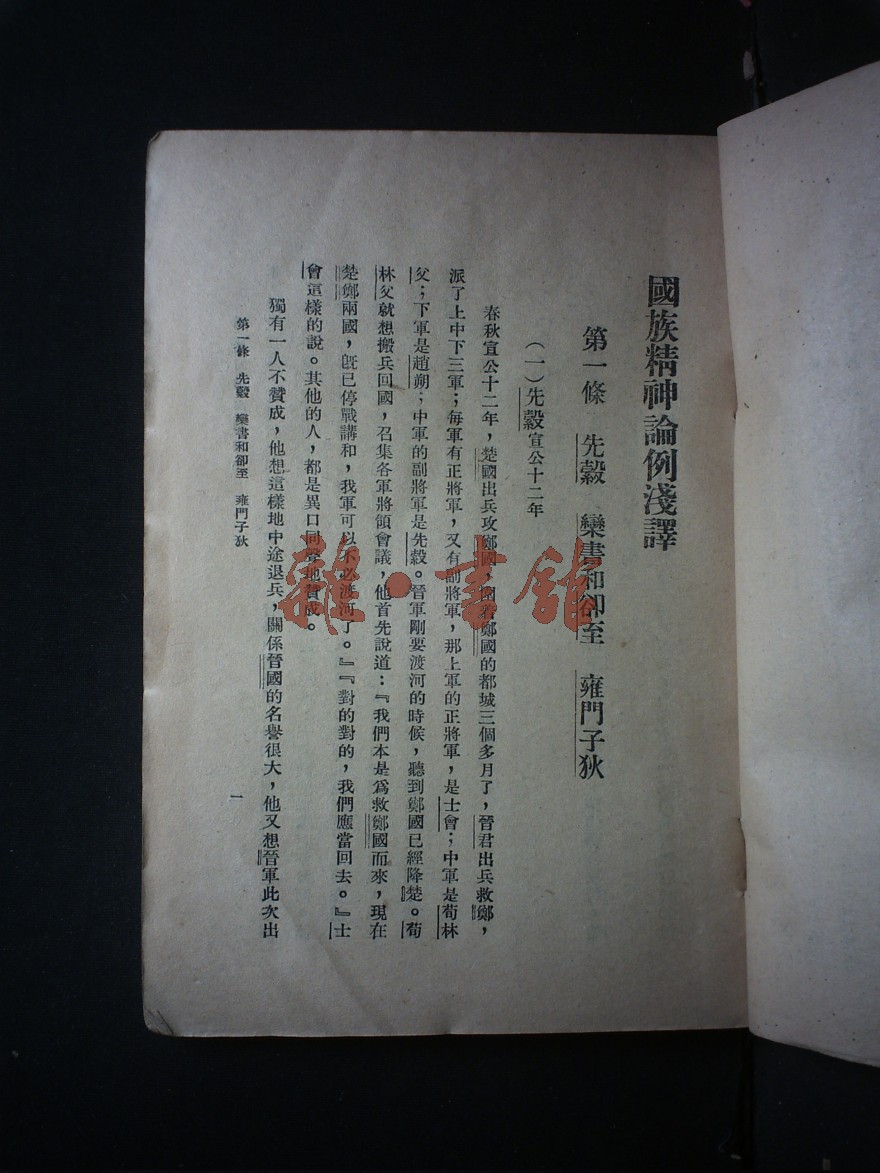 國族精神論例淺譯
第一條 先縠 欒書和卻至 雍門子狄
(一)先縠宣公十二年
春秋宣公十二年,楚國出兵攻鄭國,圍着鄭國的都城三個多月了,晉君出兵救鄭,
派了上中下三軍;每軍有正將軍,又有副將軍,那上軍的正將軍,是士會;中軍是荀林
父;下軍是趙朔;中軍的副將軍是先縠。晉軍剛要渡河的時候,聽到鄭國已經降楚。荀
林父就想搬兵回國,召集各軍將領會議,他首先說道:『我們本是爲救鄭國而來,現在
楚鄭兩國,旣已停戰講和,我軍可以不必渡河了。』『對的對的,我們應當回去。』士
會這樣的說。其他的人,都是異口同聲地贊成。
獨有一人不贊成,他想這樣地中途退兵,關係晉國的名譽很大,他又想晉軍此次出
第一條 先縠 欒書和卻至 雍門子狄
一
雜·書舘